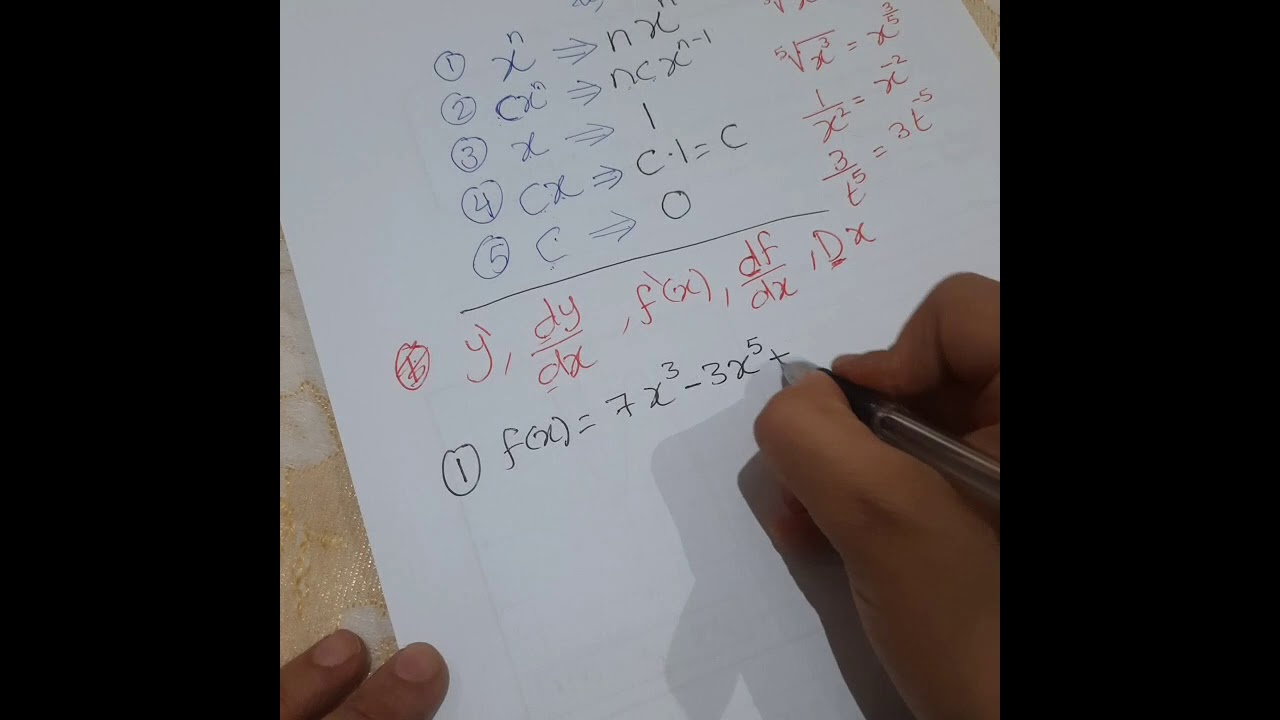 ① xⁿ ⇒ nxⁿ
② cxⁿ ⇒ ncxⁿ⁻¹
③ x ⇒ 1
④ cx ⇒ c·1 = c
⑤ c ⇒ 0
⁵√x³ = x^(3/5)
1/x² = x⁻²
3/t⁵ = 3t⁻⁵
y', dy/dx, f'(x), df/dx, Dx
① f(x) = 7x³ - 3x⁵ +